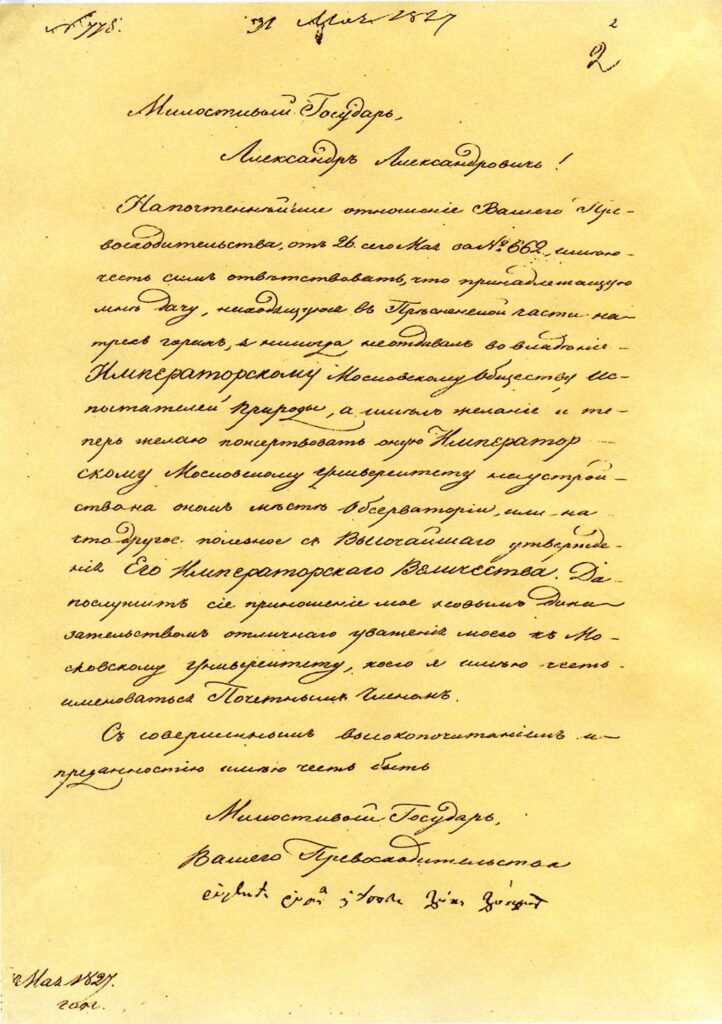 № 778.
31 Мая 1827
2
2
Милостивый Государь,
Александръ Александровичь!
На почтеннѣйшее отношеніе Вашего Пре-
восходительства, отъ 26 сего Мая за № 662, имѣю
честь симъ отвѣтствовать, что принадлежащую
мнѣ дачу, находящуюся въ Прѣсненской части на
трехъ горахъ, я никогда не отдавалъ во владѣніе
Императорскому Московскому Обществу Ис-
пытателей Природы, а имѣлъ желаніе и те-
перь желаю пожертвовать оную Император
скому Московскому Университету на устрой-
ство на ономъ мѣстѣ Обсерваторіи, или на
что другое полезное съ Высочайшаго утвержде-
нія Его Императорскаго Величества. Да
послужитъ сіе приношеніе мое новымъ дока
зательствомъ отличнаго уваженія моего къ Мо-
сковскому Университету, коего я имѣю честь
именоваться Почетнымъ Членомъ.
Съ совершеннымъ высокопочитаніемъ и
преданностію имѣю честь быть
Милостивый Государь,
Вашего Превосходительства
Мая 1827.
года.